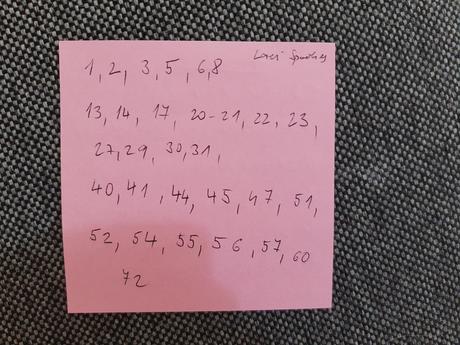 1, 2, 3, 5, 6, 8
13, 14, 17, 20-21, 22, 23,
27, 29, 30, 31,
40, 41, 44, 45, 47, 51,
52, 54, 55, 56, 57, 60
72